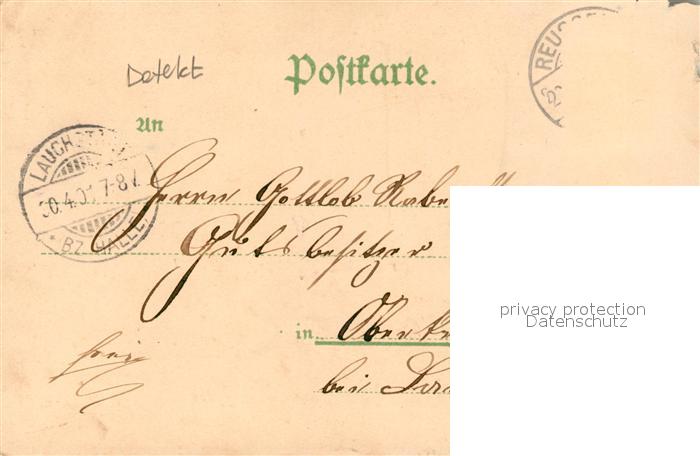 Defekt
Postkarte.
REUSS
An
LAUCHST
30.4.01 7-8 V.
* BZ. HALLE
Herrn Gottlob Rabe
Gutsbesitzer
in Oberk
bei
frei
privacy protection
Datenschutz